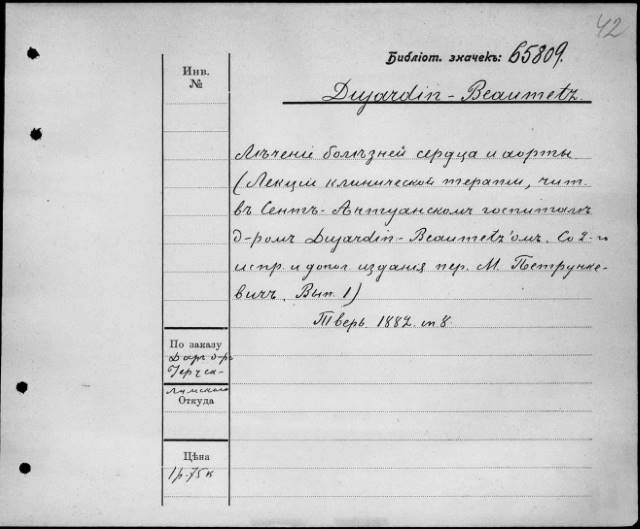 42
Библіот. значекъ: 65809.
Инв.
№
Dujardin-Beaumetz.
Лѣченіе болѣзней сердца и аорты.
(Лекціи клинической терапіи, чит.
въ Сентъ-Антуанскомъ госпиталѣ
д-ромъ Dujardin-Beaumetz'омъ. Со 2-го
испр. и допол. изданія пер. М. Петрунке-
вичъ. Вып. 1)
Тверь. 1882. in 8.
По заказу
Даръ д-ра
Откуда
Цѣна
1р. 75к